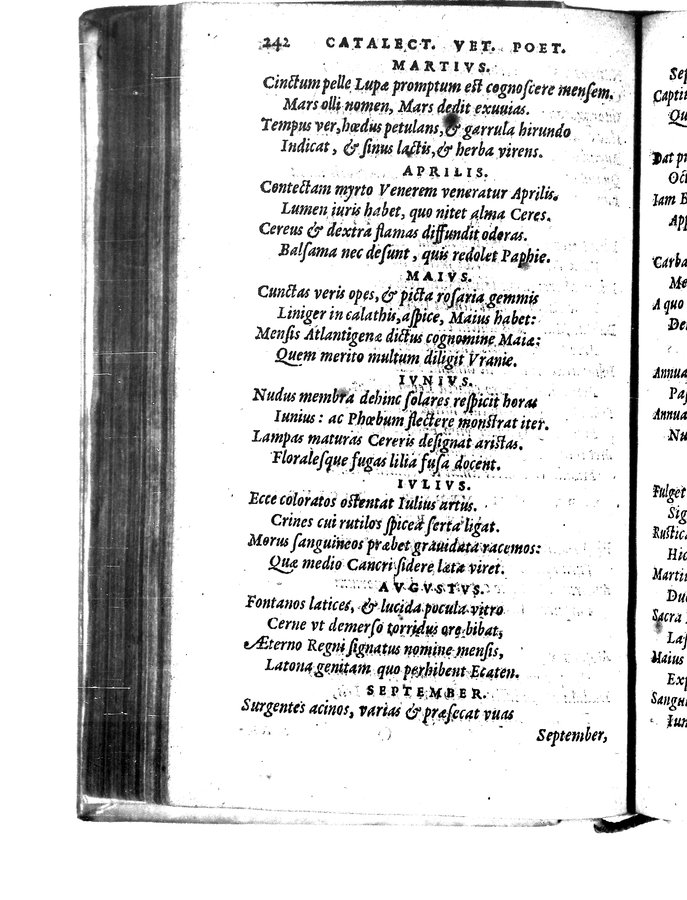 242 CATALECT. VET. POET.
MARTIVS.
Cinctum pelle Lupæ promptum est cognoscere mensem.
Mars olli nomen, Mars dedit exuuias.
Tempus ver, hœdus petulans, & garrula hirundo
Indicat, & sinus lactis, & herba virens.
APRILIS.
Contectam myrto Venerem veneratur Aprilis.
Lumen iuris habet, quo nitet alma Ceres.
Cereus & dextra flamas diffundit odoras.
Balsama nec desunt, quis redolet Paphie.
MAIVS.
Cunctas veris opes, & picta rosaria gemmis
Liniger in calathis, aspice, Maius habet:
Mensis Atlantigenæ dictus cognomine Maiæ:
Quem merito multum diligit Vranie.
IVNIVS.
Nudus membra dehinc solares respicit horas
Iunius: ac Phœbum flectere monstrat iter.
Lampas maturas Cereris designat aristas.
Floralesque fugas lilia fusa docent.
IVLIVS.
Ecce coloratos ostentat Iulius artus.
Crines cui rutilos spicea serta ligat.
Morus sanguineos præbet grauidata racemos:
Quæ medio Cancri sidere læta viret.
AVGVSTVS.
Fontanos latices, & lucida pocula vitro
Cerne vt demerso torridus ore bibat,
Æterno Regni signatus nomine mensis,
Latona genitam quo perhibent Ecaten.
SEPTEMBER.
Surgentes acinos, varias & præsecat vuas
September,
Sep
Captiu
Qu
Dat pr
Oct
Iam B
App
Carba
Me
A quo
De
Annua
Pa
Annua
Nu
Fulget
Sig
Rustica
Hic
Martin
Du
Sacra
Las
Maius
Exp
Sangu
Iun